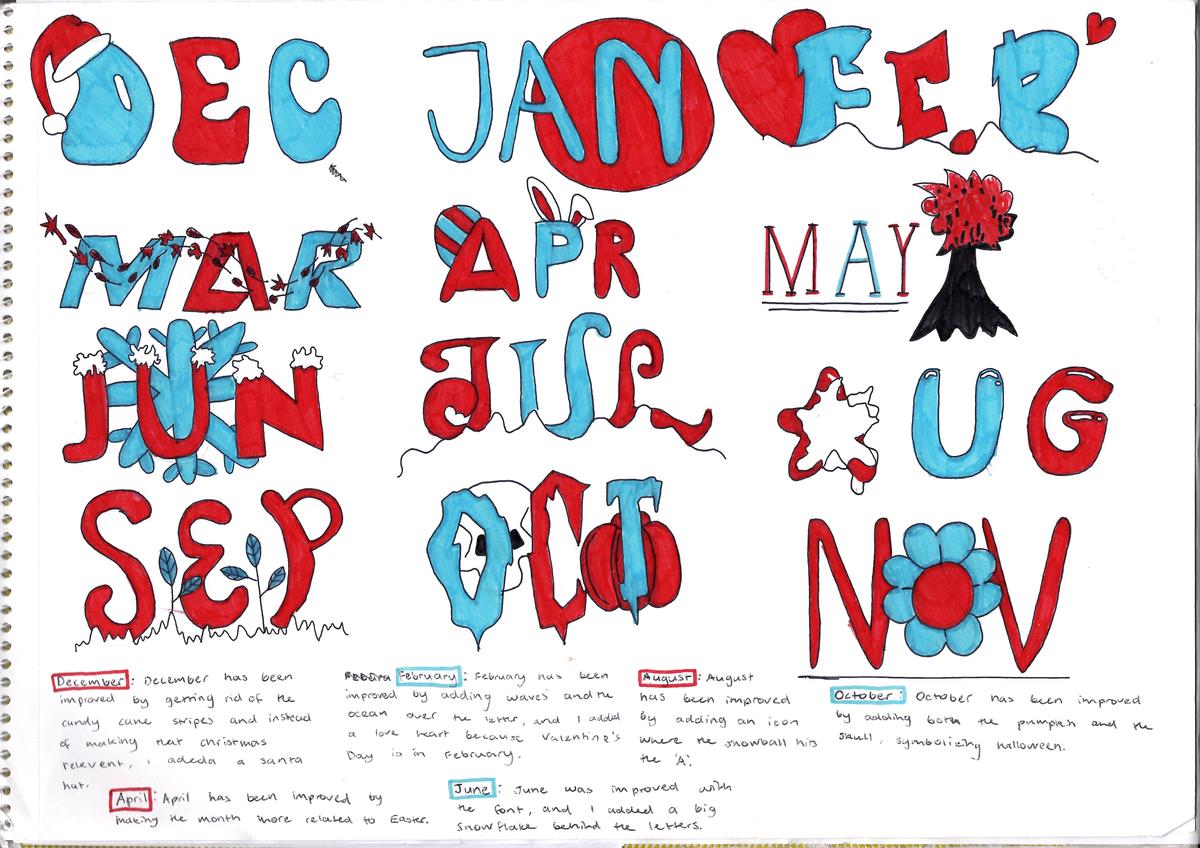 DEC
JAN
FEB
MAR
APR
MAY
JUN
JUL
UG
SEP
OCT
NOV
December: December has been
improved by getting rid of the
candy cane stripes and instead
of making that christmas
relevent, i adeda a santa
hat.
February: February has been
improved by adding waves and the
ocean over the letter, and I added
a love heart because Valentine's
Day is in February.
August: August
has been improved
by adding an icon
where the snowball hits
the 'A'.
October: October has been improved
by adding both the pumpkin and the
skull, symbolizing halloween.
April: April has been improved by
making the month more related to Easter.
June: June was improved with
the font, and I added a big
snowflake behind the letters.